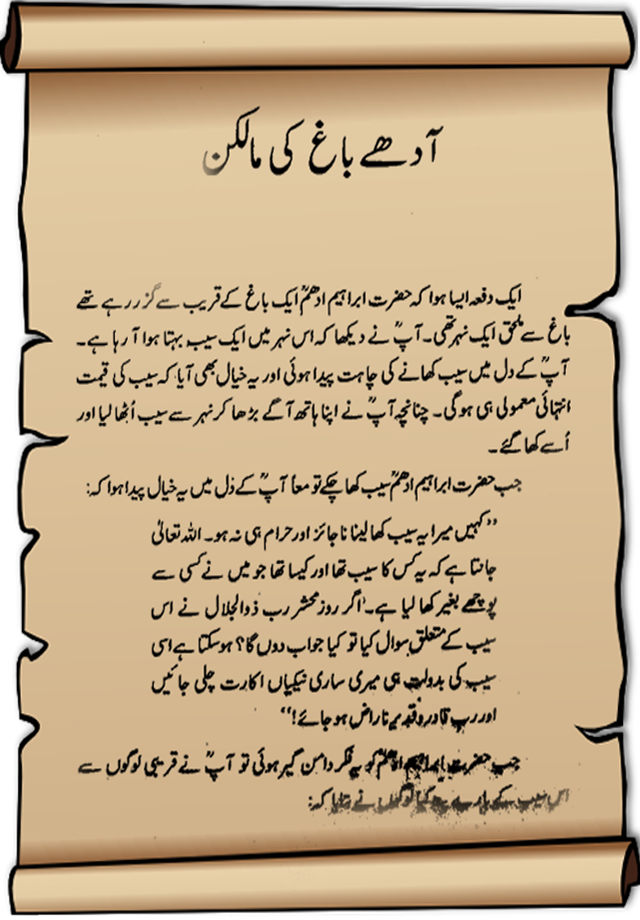 آدھے باغ کی مالکن
ایک دفعہ ایسا ہوا کہ حضرت ابراہیم ادھمؒ ایک باغ کے قریب سے گزر رہے تھے
باغ سے ملحق ایک نہر تھی۔ آپؒ نے دیکھا کہ اس نہر میں ایک سیب بہتا ہوا آ رہا ہے۔
آپؒ کے دل میں سیب کھانے کی چاہت پیدا ہوئی اور یہ خیال بھی آیا کہ سیب کی قیمت
انتہائی معمولی ہی ہوگی۔ چنانچہ آپؒ نے اپنا ہاتھ آگے بڑھا کر نہر سے سیب اُٹھا لیا اور
اُسے کھا گئے۔
جب حضرت ابراہیم ادھمؒ سیب کھا چکے تو معاً آپؒ کے دل میں یہ خیال پیدا ہوا کہ:
’’کہیں میرا یہ سیب کھا لینا ناجائز اور حرام ہی نہ ہو۔ اللہ تعالیٰ
جانتا ہے کہ یہ کس کا سیب تھا اور کیسا تھا جو میں نے کسی سے
پوچھے بغیر کھا لیا ہے۔ اگر روزِ محشر رب ذوالجلال نے اس
سیب کے متعلق سوال کیا تو کیا جواب دوں گا؟ ہوسکتا ہے اسی
سیب کی بدولت ہی میری ساری نیکیاں اکارت چلی جائیں
اور ربِ قادر و قدیر ناراض ہو جائے!‘‘
جب حضرت ابراہیم ادھمؒ کو یہ فکر دامن گیر ہوئی تو آپؒ نے قریبی لوگوں سے
اس سیب کے بارے لوگوں نے بتایا کہ: